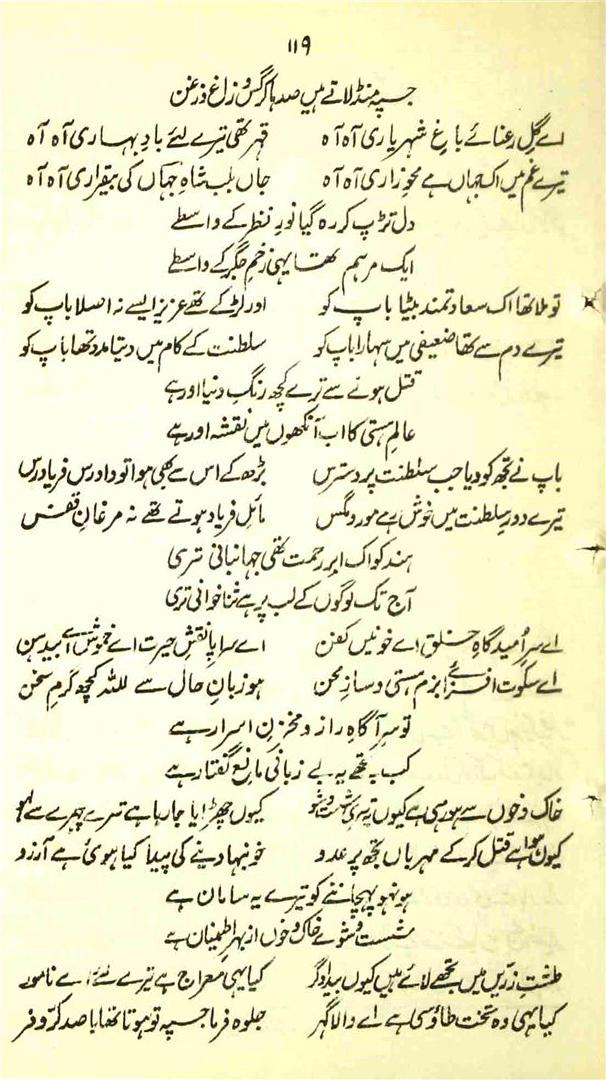 ۱۱۹
جسپہ منڈلاتے ہیں صدہا کرگس و زاغ و زغن
اے گلِ رعنائے باغِ شہریاری آہ آہ قہر تھی تیرے لئے بادِ بہاری آہ آہ
تیرے غم میں اک جہاں ہے محوِ زاری آہ آہ جاں بلب شاہِ جہاں کی بیقراری آہ آہ
دل تڑپ کر رہ گیا نورِ نظر کے واسطے
ایک مرہم تھا یہی زخمِ جگر کے واسطے
تو ملا تھا اک سعادتمند بیٹا باپ کو اور لڑکے تھے عزیز ایسے نہ اصلا باپ کو
تیرے دم سے تھا ضعیفی میں سہارا باپ کو سلطنت کے کام میں دیتا مدد تھا باپ کو
قتل ہونے سے ترے کچھ رنگِ دنیا اور ہے
عالمِ ہستی کا اب آنکھوں میں نقشہ اور ہے
باپ نے تجھ کو دیا جب سلطنت پر دسترس بڑھ کے اس سے بھی ہوا تو داورس فریاد رس
تیرے دورِ سلطنت میں خوش رہے مور و مگس مائلِ فریاد ہوتے تھے نہ مرغانِ قفس
ہند کو اک ابرِ رحمت تھی جہانبانی تری
آج تک لوگوں کے لب پر ہے ثنا خوانی تری
اے سرِ اُمید گاہِ خلق اے خونیں کفن اے سراپا نقشِ حیرت اے خموشی آب دہن
اے سکوت افزائے بزمِ ہستی و سازِ محن ہو زبانِ حال سے للہ کچھ گرمِ سخن
تو سرِ آگاہِ راز و مخزنِ اسرار ہے
کب یہ تجھے یہ بے زبانی مانعِ گفتار ہے
خاک و خوں سے ہو رہی ہے کیوں تری شست و شو کیوں چھڑایا جا رہا ہے تیرے چہرے سے لہو
کیوں ہوا ہے قتل کر کے مہرباں تجھ پر عدو خونبہا دینے کی پیدا کیا ہوئی ہے آرزو
ہو نہ ہو پہچاننے کو تیرے یہ سامان ہے
شست و شوئے خاک و خوں از بہرِ اطمینان ہے
طشتِ زرّیں میں تجھے لائے ہیں کیوں بیدادگر کیا یہی معراج ہے تیرے لئے اے نامور
کیا یہی وہ تختِ طاؤسی ہے اے والا گہر جلوہ فرما جسپہ تو ہوتا تھا با صد کرّ و فر